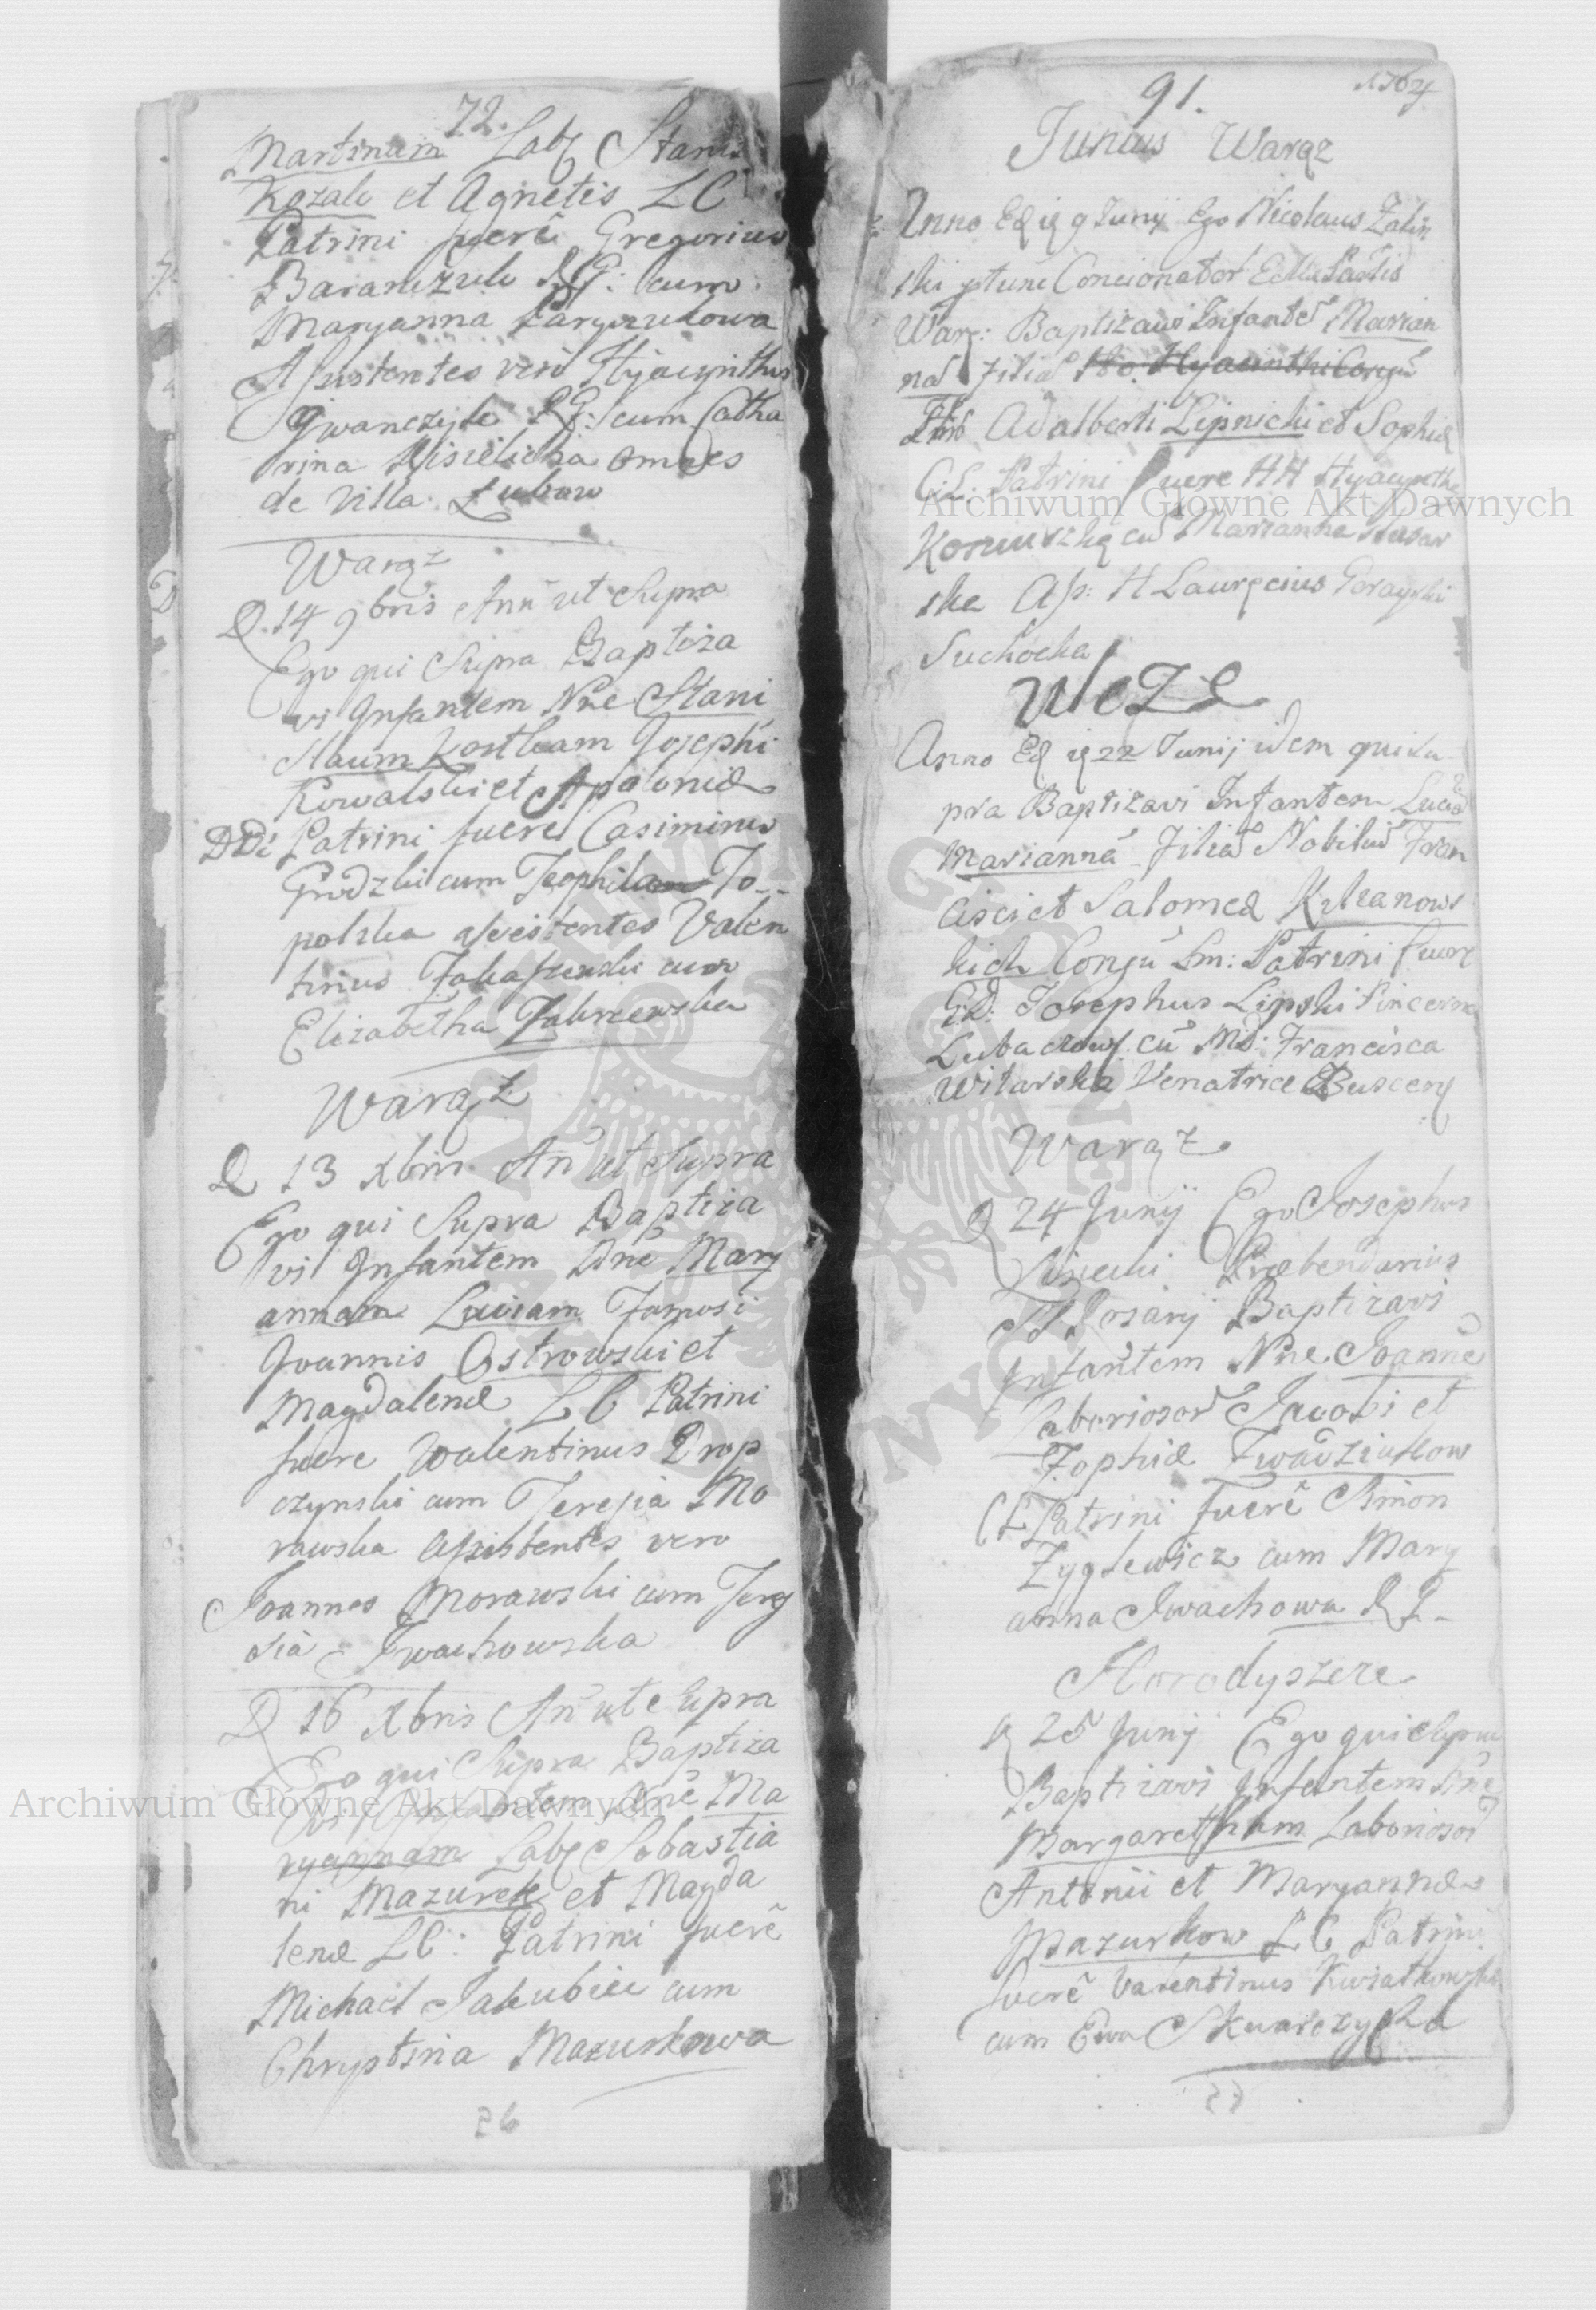 72.
Martinum Lab Stanis
Kozak et Agnetis LC
Patrini fuerẽ Gregorius
Baranczuk cum
Maryanna
Assistentes vero Hyacynthus
Jwanczyk cum Catha
rina Kisielicha omnes
de Villa Łubow
Warąz
D. 14 9bris Ann ut Supra
Ego qui Supra Baptiza
vi Infantem Nne Stani
slaum Kostkam Josephi
Kowalski et Apoloniæ
DDi Patrini fuere Casimirus
Grodzki cum Teophila To
polska assistentes Valen
tinus cum
Elizabetha Zakrzewska
Warąż
D 13 Xbris An ut Supra
Ego qui Supra Baptiza
vi Infantem Nne Mary
annam Luciam Famosi
Joannis Ostrowski et
Magdalenæ LC Patrini
fuere Walentinus Drop
czynski cum Teresia Mo
rawska Assistentes vero
Joannes Morawski cum Tere
sia Iwachowska
D 16 Xbris An ut Supra
Ego qui Supra Baptiza
vi Infantem Nne Ma
ryannam Lab Sebastia
ni Mazurek et Magda
lenæ LC: Patrini fuerẽ
Michael Jakubiec cum
Chrystina Mazurkowa
26
91.
Junius Warąz
Anno Eod 9 Junij Ego Nicolaus Zalin
ski Concionator Eccl
War: Baptizavi Infantẽ Marian
nã Filiã Hyacinthi
Adalberti Lipnicki et Sophiæ
C:L: Patrini fuere HH Hyacynth
cũ Marianna
ska As: H Laurecius Gorayski
Suchocka
Anno Eod 22 Junij idem qui su
pra Baptizavi Infantem Luciã
Mariannã Filiã Nobiliũ Fran
cisci et Salomeæ Krzanows
kich Conjũ Lm: Patrini fuere
G:D: Josephus Lipski Pincerna
Lubaczows. cũ MD: Francisca
Witarska Venatrice Buscen
Warąż
D 24 Junij Ego Josephus
Præbendarius
Rosarij Baptizavi
Infantem Nne Joannẽ
Laboriosor Jacobi et
Zophiæ Iwadziukow
CL Patrini fuerẽ Simon
Zyglewicz cum Mary
anna Iwachowa
Horodyszcze
D 25 Junij Ego qui supra
Baptizavi Infantem Nne
Margaretham Laborioso
Antonii et Maryannæ
Mazurkow LC Patrini
fuerẽ Valentinus Kwiatkowski
cum Ewa
27
Archiwum Główne Akt Dawnych
Archiwum Główne Akt Dawnych